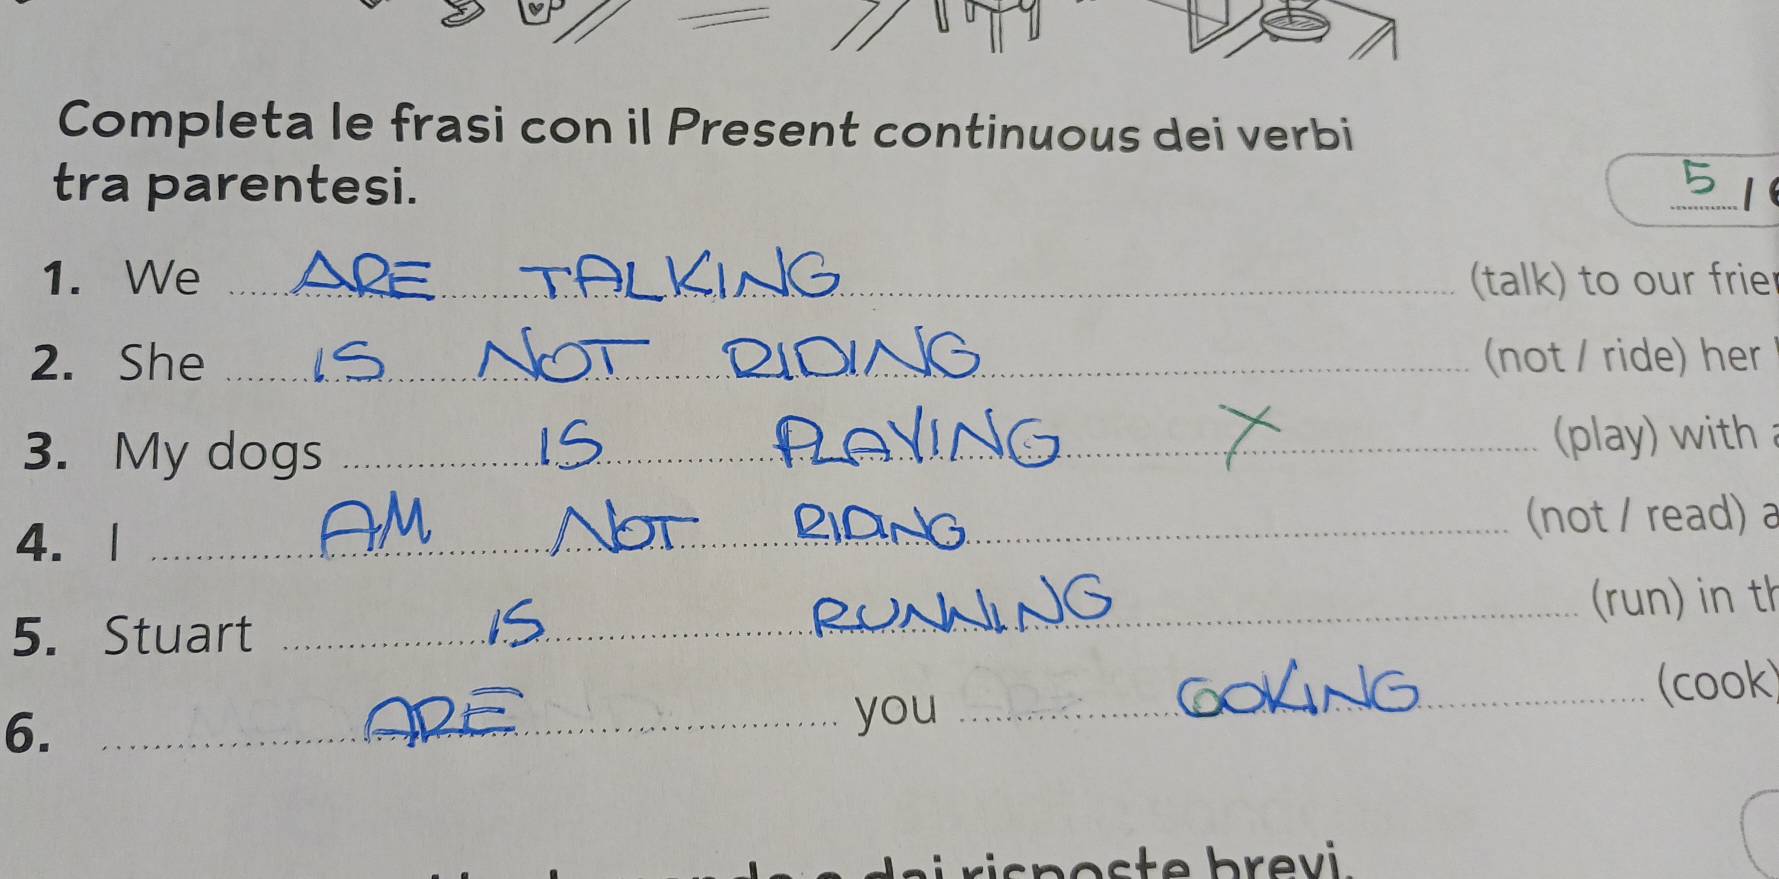 Completa le frasi con il Present continuous dei verbi
tra parentesi.
5 /
1. We ARE TALKING (talk) to our
2. She IS NOT RIDING (not / ride) her
3. My dogs IS PLAYING X (play) with
4. I AM NOT RIDING (not / read) a
5. Stuart IS RUNNING (run) in
6. ARE you COOKING (cook)
risposte brevi.